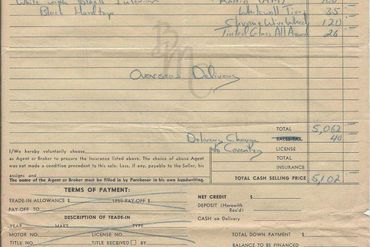 Black Hardtop
Whitewall Tires 35
Chrome Wire Wheels 120
Tinted Glass All Around 26
BMC
Overseas Delivery
TOTAL 5,062
Delivery Charge 40
to Coventry
LICENSE
TOTAL
INSURANCE
TOTAL CASH SELLING PRICE 5,102
I/We hereby voluntarily choose
as Agent or Broker to procure the insurance listed above. The choice of above Agent
was not made a condition precedent to this sale. Loss, if any, payable to the Seller, his
assigns and
The name of the Agent or Broker must be filled in by Purchaser in his own handwriting.
TERMS OF PAYMENT:
TRADE-IN ALLOWANCE $ LESS PAY-OFF $
PAY-OFF TO
DESCRIPTION OF TRADE-IN
YEAR MAKE TYPE
MOTOR NO. LICENSE NO.
TITLE NO. TITLE RECEIVED BY
NET CREDIT $
DEPOSIT (Herewith Rec'd)
CASH on Delivery
TOTAL DOWN PAYMENT $
BALANCE TO BE FINANCED